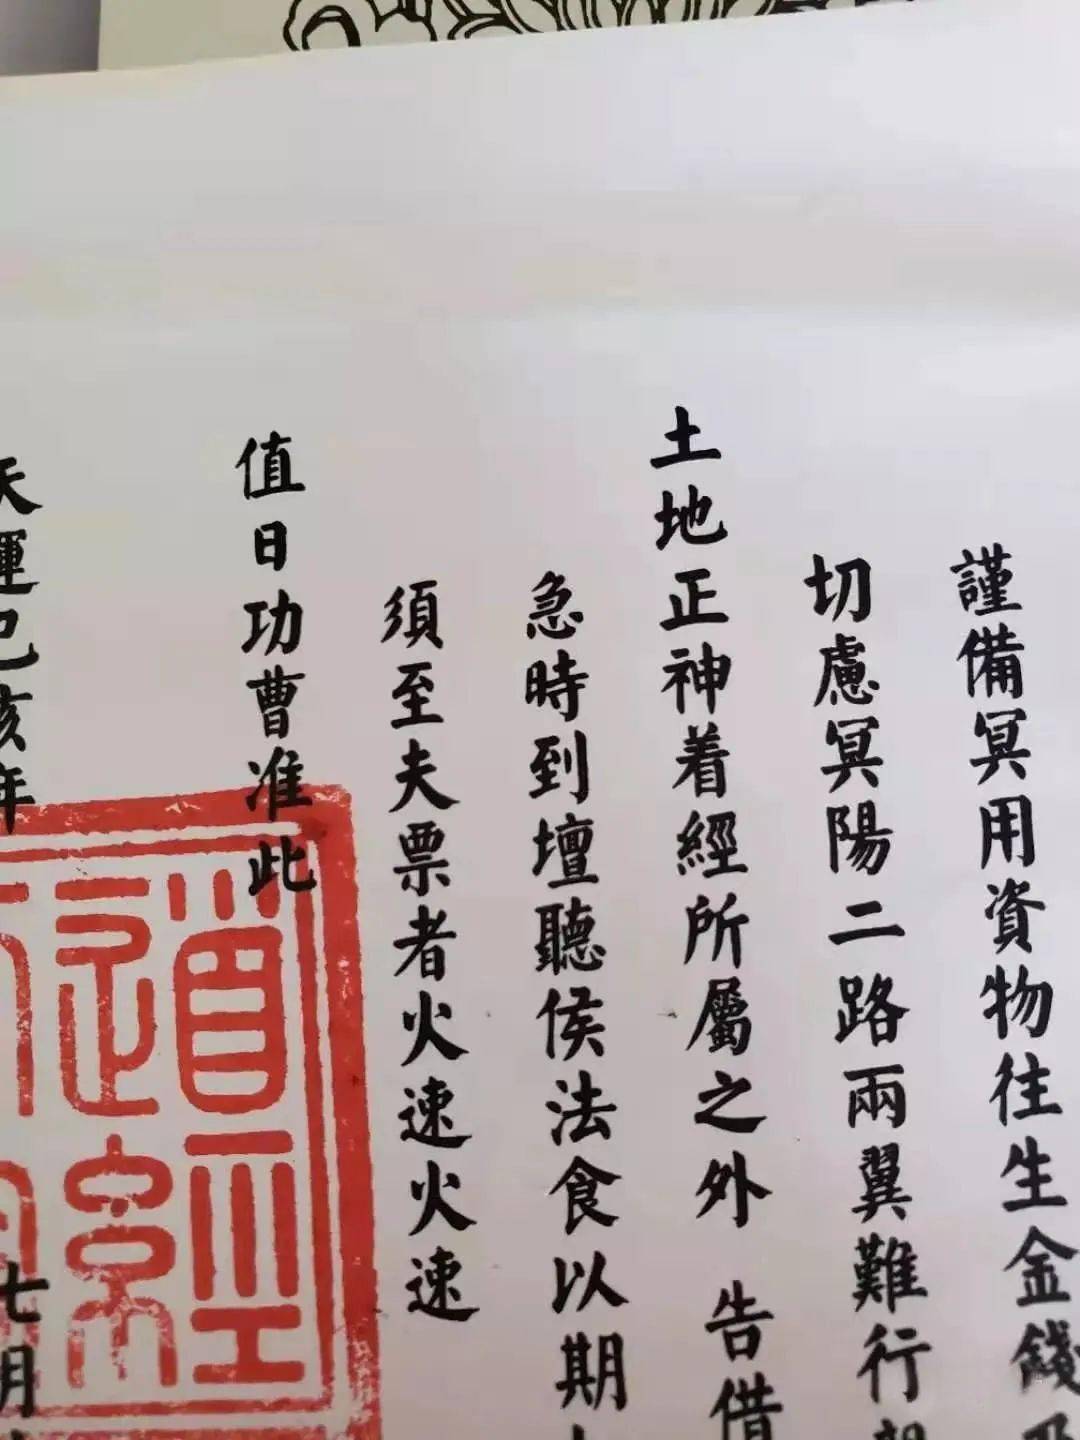 謹備冥用資物往生金錢
切慮冥陽二路兩翼難行
土地正神着經所屬之外 告借
急時到壇聽侯法食以期
須至夫票者火速火速
值日功曹准此
天運己亥年 七月
道經